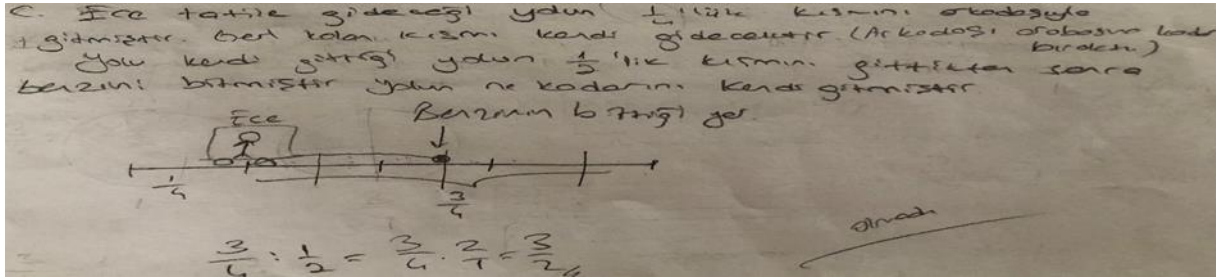 C. Ece tatile gideceği yolun 1/4 'lük kısmını arkadaşıyla
gitmiştir. Geri kalan kısmı kendi gidecektir (Arkadaşı arabasını
Yolu kendi gittiği yolun 1/2 'lik kısmını gittikten sonra
benzini bitmiştir yolun ne kadarını kendi gitmiştir.
Ece Benzinin bittiği yer.
1/4 3/4
3/4 : 1/2 = 3/4 . 2/1 = 3/2 //
olmadı